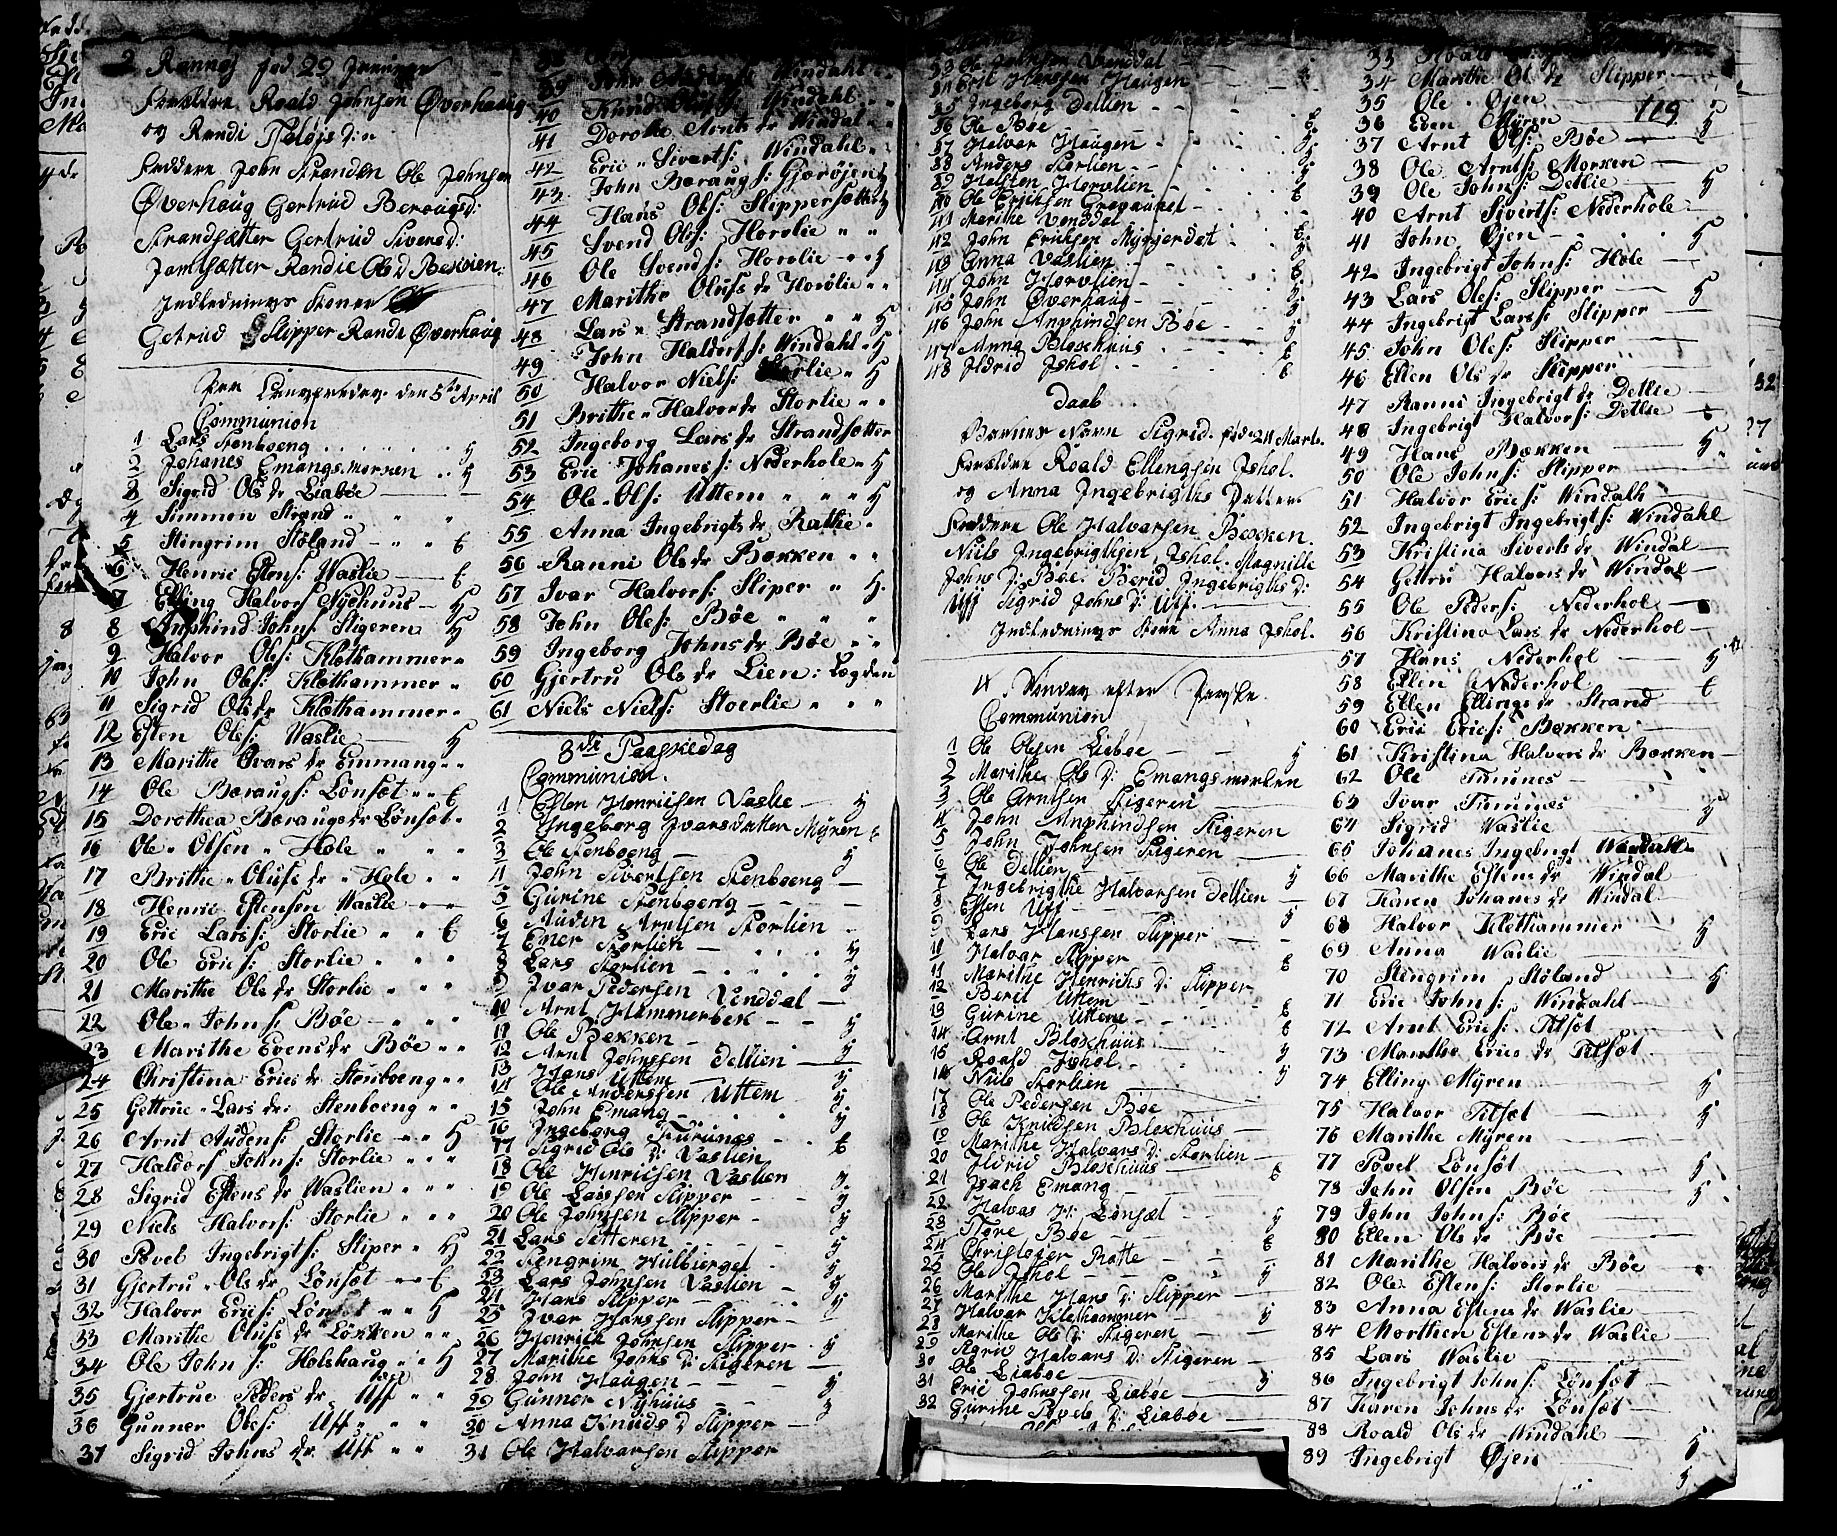 2 Rannøj fød 29 Januar
Forældre Roald Johnsen Øverhaug
og Randi
Faddere John Stranden Ole Johnsen
Øverhaug Gertrud Beraugsd:
Strandsætter Gertrud Siversd:
Jamtsætter Randie Ols D
Indlednings Koner
Getrud Slipper Randi Øverhaug
den 5te April
Communion
1 Lars Stenboeng
2 Johanes Emangsmorken
3 Sigrid Ols dr Liabøe
4 Simmon Strand
5 Stingrim Støland
6 Henric Estens: Waslie
7 Elling Halvors Nyehuus
8 Anphind Johns Stigeren
9 Halvor Oles: Klethammer
10 John Oles: Klethammer
11 Sigrid Ols dr Klethammer
12 Esten Oles: Waslie
13 Marithe Ivars dr Emmang
14 Ole Beraugs: Lønset
15 Dorothea Beraugs dr Lønset
16 Ole Olsen Hole
17 Brithe Olufs dr Hole
18 Henric Estensen Waslie
19 Eric Larss: Storlie
20 Ole Erics: Storlie
21 Marithe Ols dr Storlie
22 Ole Johns: Bøe
23 Marithe Evens dr Bøe
24 Christina Erics dr Stenboeng
25 Gettrue Lars dr: Stenboeng
26 Arnt Audens: Storlie
27 Haldors Johns: Storlie
28 Sigrid Estens dr Waslien
29 Niels Halvors: Storlie
30 Povel Ingebrigts: Sliper
31 Gjertru Ols dr Lønset
32 Halvor Erics: Lønset
33 Marithe Olufs dr Løkken
34 Ole Johns: Holshaug
35 Gjertrue Peders dr Uff
36 Gunner Oles: Uff
37 Sigrid Johns dr Uff
39 John Windahl
40 Knud Olufs: Windahl
41 Dorothe Arnts dr Windal
42 Eric Sivarts: Windahl
43 John Beraugs: Gjerøjen
44 Hans Oles: Slippersætter
45 Svend Oles: Horvlie
46 Ole Svends: Horvlie
47 Marithe Olufs dr Horvlie
48 Lars Strandsætter
49 John Haldorss: Windahl
50 Halvor Niels: Storlie
51 Brithe Halvors dr Storlie
52 Ingeborg Lars dr Strandsætter
53 Eric Johaness: Nederhole
54 Ole Ols: Uttem
55 Anna Ingebrigts dr Rathe
56 Ranni Ols dr Bækken
57 Ivar Halvors: Sliper
58 John Oles: Bøe
59 Ingeborg Johns dr Bøe
60 Gjertru Ols dr Lien: Lægden
61 Niels Niels: Stoerlie
8de Paaskedag
Communion
1 Esten Henricsen Vaslie
2 Ingeborg Ivarsdatter Mÿren
3 Ole Stenboeng
4 John Sivertsen Stenboeng
5 Gurine Stenboeng
6 Auden Arntsen Storlien
7 Ener Storlien
8 Lars Storlien
9 Ivar Pedersen Venddal
10 Arnt Hammerbek
11 Ole Bekken
12 Arnt Johnssen Detlien
13 Hans Uttem
14 Ole Anderssen Uttem
15 John Emang
16 Ingeborg Furunæs
17 Sigrid Ols D: Vaslien
18 Ole Hinricsen Vaslien
19 Ole Larssen Slipper
20 Ole Johnsen Slipper
21 Lars Setteren
22 Stengrim Hulbierget
23 Lars Johnsen Vaslien
24 Hans Slipper
25 Ivar Hanssen Slipper
26 Henrich Johnsen Slipper
27 Marithe Johns D: Stigeren
28 John Haugen
29 Gunner Nyhuus
30 Anna Knuds D Slipper
31 Ole Halvarsen Slipper
33 Ole Venddal
34 Eril Hanssen Haugen
35 Ingeborg Detlien
36 Ole Bøe
37 Halvar Haugen
38 Anders Storlien
39 Halsten Horvlien
40 Ole Ericksen Gregaunet
41 Marithe Venddal
42 John Eriksen Myrgjerdet
43 Anna Vaslien
44 John Horvlien
45 John Øverhaug
46 John Anphindsen Bøe
47 Anna Bloxhuus
48 Ildrid Ishol
Daab
Barnets Navn Sigrid. fød 24 Marts
Forældre Roald Ellengsen Ishol.
og Anna Ingebrigths Datter
Faddere Ole Halvarsen Bekken.
Niels Ingebrigthsen Ishol. Magnille
Johns D: Bøe. Berid Ingebrigths D:
Uff Sigrid Johns D: Uff.
Indlednings Kone Anna Ishol.
4 Søndag efter Paaske.
Communion
1 Ole Olsen Liabøe
2 Marithe Ols D: Emangsmorken
3 Ole Arntsen Stigeren
4 John Anphindsen Stigeren
5 John Johnsen Stigeren
6 Ole Detlien
7 Ingebrigthe Halvarsen Detlien
8 Esten Uff
9 Lars Hanssen Slipper
10 Halvar Slipper
11 Marithe Henrichs D: Slipper
12 Beret Uttem
13 Gurine Uttem
14 Arnt Bloxhuus
15 Roald Ishol
16 Niels Storlien
17 Ole Pedersen Bøe
18 Ole Knudsen Bloxhuus
19 Marithe Halvars D: Storlien
20 Ildrid Bloxhuus
21 Isach Emang
22 Halvar H: Lønset
23 Tore Bøe
24 Christofer Ratte
25 Ole Ishol
26 Marithe Hans D: Slipper
27 Halvar Klethammer
28 Marithe Ols D: Stigeren
29 Sigrii Halvars D: Stigeren
30 Ole Liabøe
31 Eric Johnssen Liabøe
32 Gurine Povels D: Liabøe
119
33 Roald
34 Marithe Ols dr Slipper
35 Ole Øjen
36 Even Mÿren
37 Arnt Ols: Bøe
38 Ole Arnts: Morken
39 Ole Johns: Detlie
40 Arnt Siverts: Nederhole
41 John Øjen
42 Ingebrigt Johns: Hole
43 Lars Oles: Slipper
44 Ingebrigt Larss: Slipper
45 John Oles: Slipper
46 Ellen Ols dr Slipper
47 Ranni Ingebrigt dr Detlie
48 Ingebrigt Halvors: Detlie
49 Hans Bækken
50 Ole Johns: Slipper
51 Halvor Erics: Windalh
52 Ingebrigt Ingebrigts: Windahl
53 Kristina Siverts dr Windal
54 Gettru Halvors dr Windal
55 Ole Peders: Nederhol
56 Kristina Lars dr Nederhol
57 Hans Nederhol
58 Ellen Nederhol
59 Ellen Ellings dr Strand
60 Eric Erics: Bækken
61 Kristina Halvors dr Bækken
62 Ole Furunes
63 Ivar Furunes
64 Sigrid Waslie
65 Johanes Ingebrigt Windahl
66 Marithe Estens dr Windal
67 Karen Johanes dr Windal
68 Halvor Klethammer
69 Anna Waslie
70 Stengrim Støland
71 Eric Johns: Windahl
72 Arnt Erics: Tilset
73 Marithe Erics dr Tilset
74 Elling Mÿren
75 Halvor Tilset
76 Marithe Mÿren
77 Povel Lønset
78 John Olsen Bøe
79 John Johns: Bøe
80 Ellen Ols dr Bøe
81 Marithe Halvors dr Bøe
82 Ole Estens: Storlie
83 Anna Estens dr Waslie
84 Morthen Estens dr Waslie
85 Lars Waslie
86 Ingebrigt Johns: Lønset
87 Karen Johns dr Lønset
88 Roald Ols dr Windahl
89 Ingebrigt Øjen